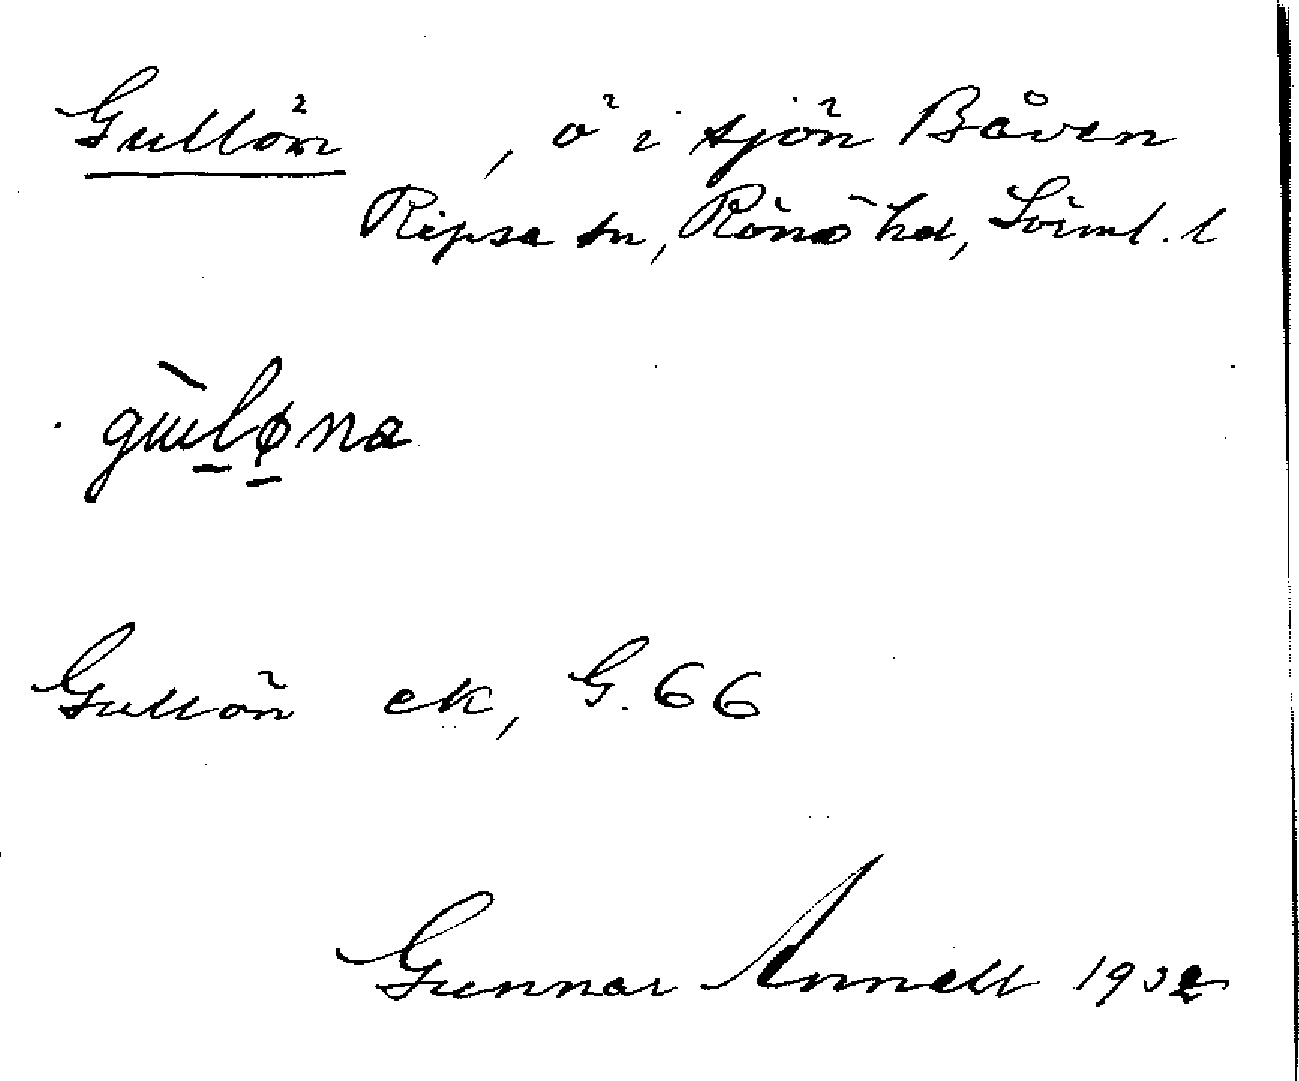 Gullön, ö i sjön Båven
Ripsa sn, Rönö hd, Sörml. l
gùlø̱na
Gullön ek, G. 66
Gunnar Annell 1932